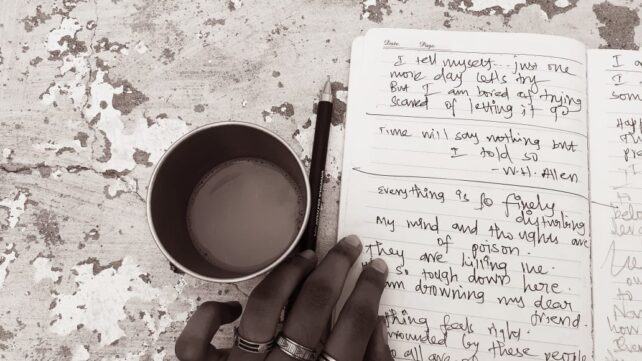 Date. Page.
I tell myself... just one
more day let's try
But I am bored of trying
scared of letting it go
Time will say nothing but
I told so
- W.H. Allen
Everything is so finely
disturbing
My mind and thoughts are
of poison.
They are killing me.
so tough down here.
am drowning my dear
friend.
thing feels right.
rrounded by these people
all are
I a
I
som
Happ
the
pr